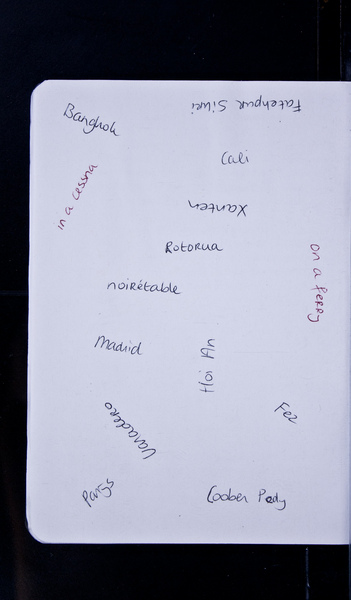 Bangkok
Fatehpur Sikri
Cali
in a cessna
Xanten
Rotorua
on a ferry
noirétable
Madrid
Hoi An
Varadero
Fez
Parijs
Coober Pedy